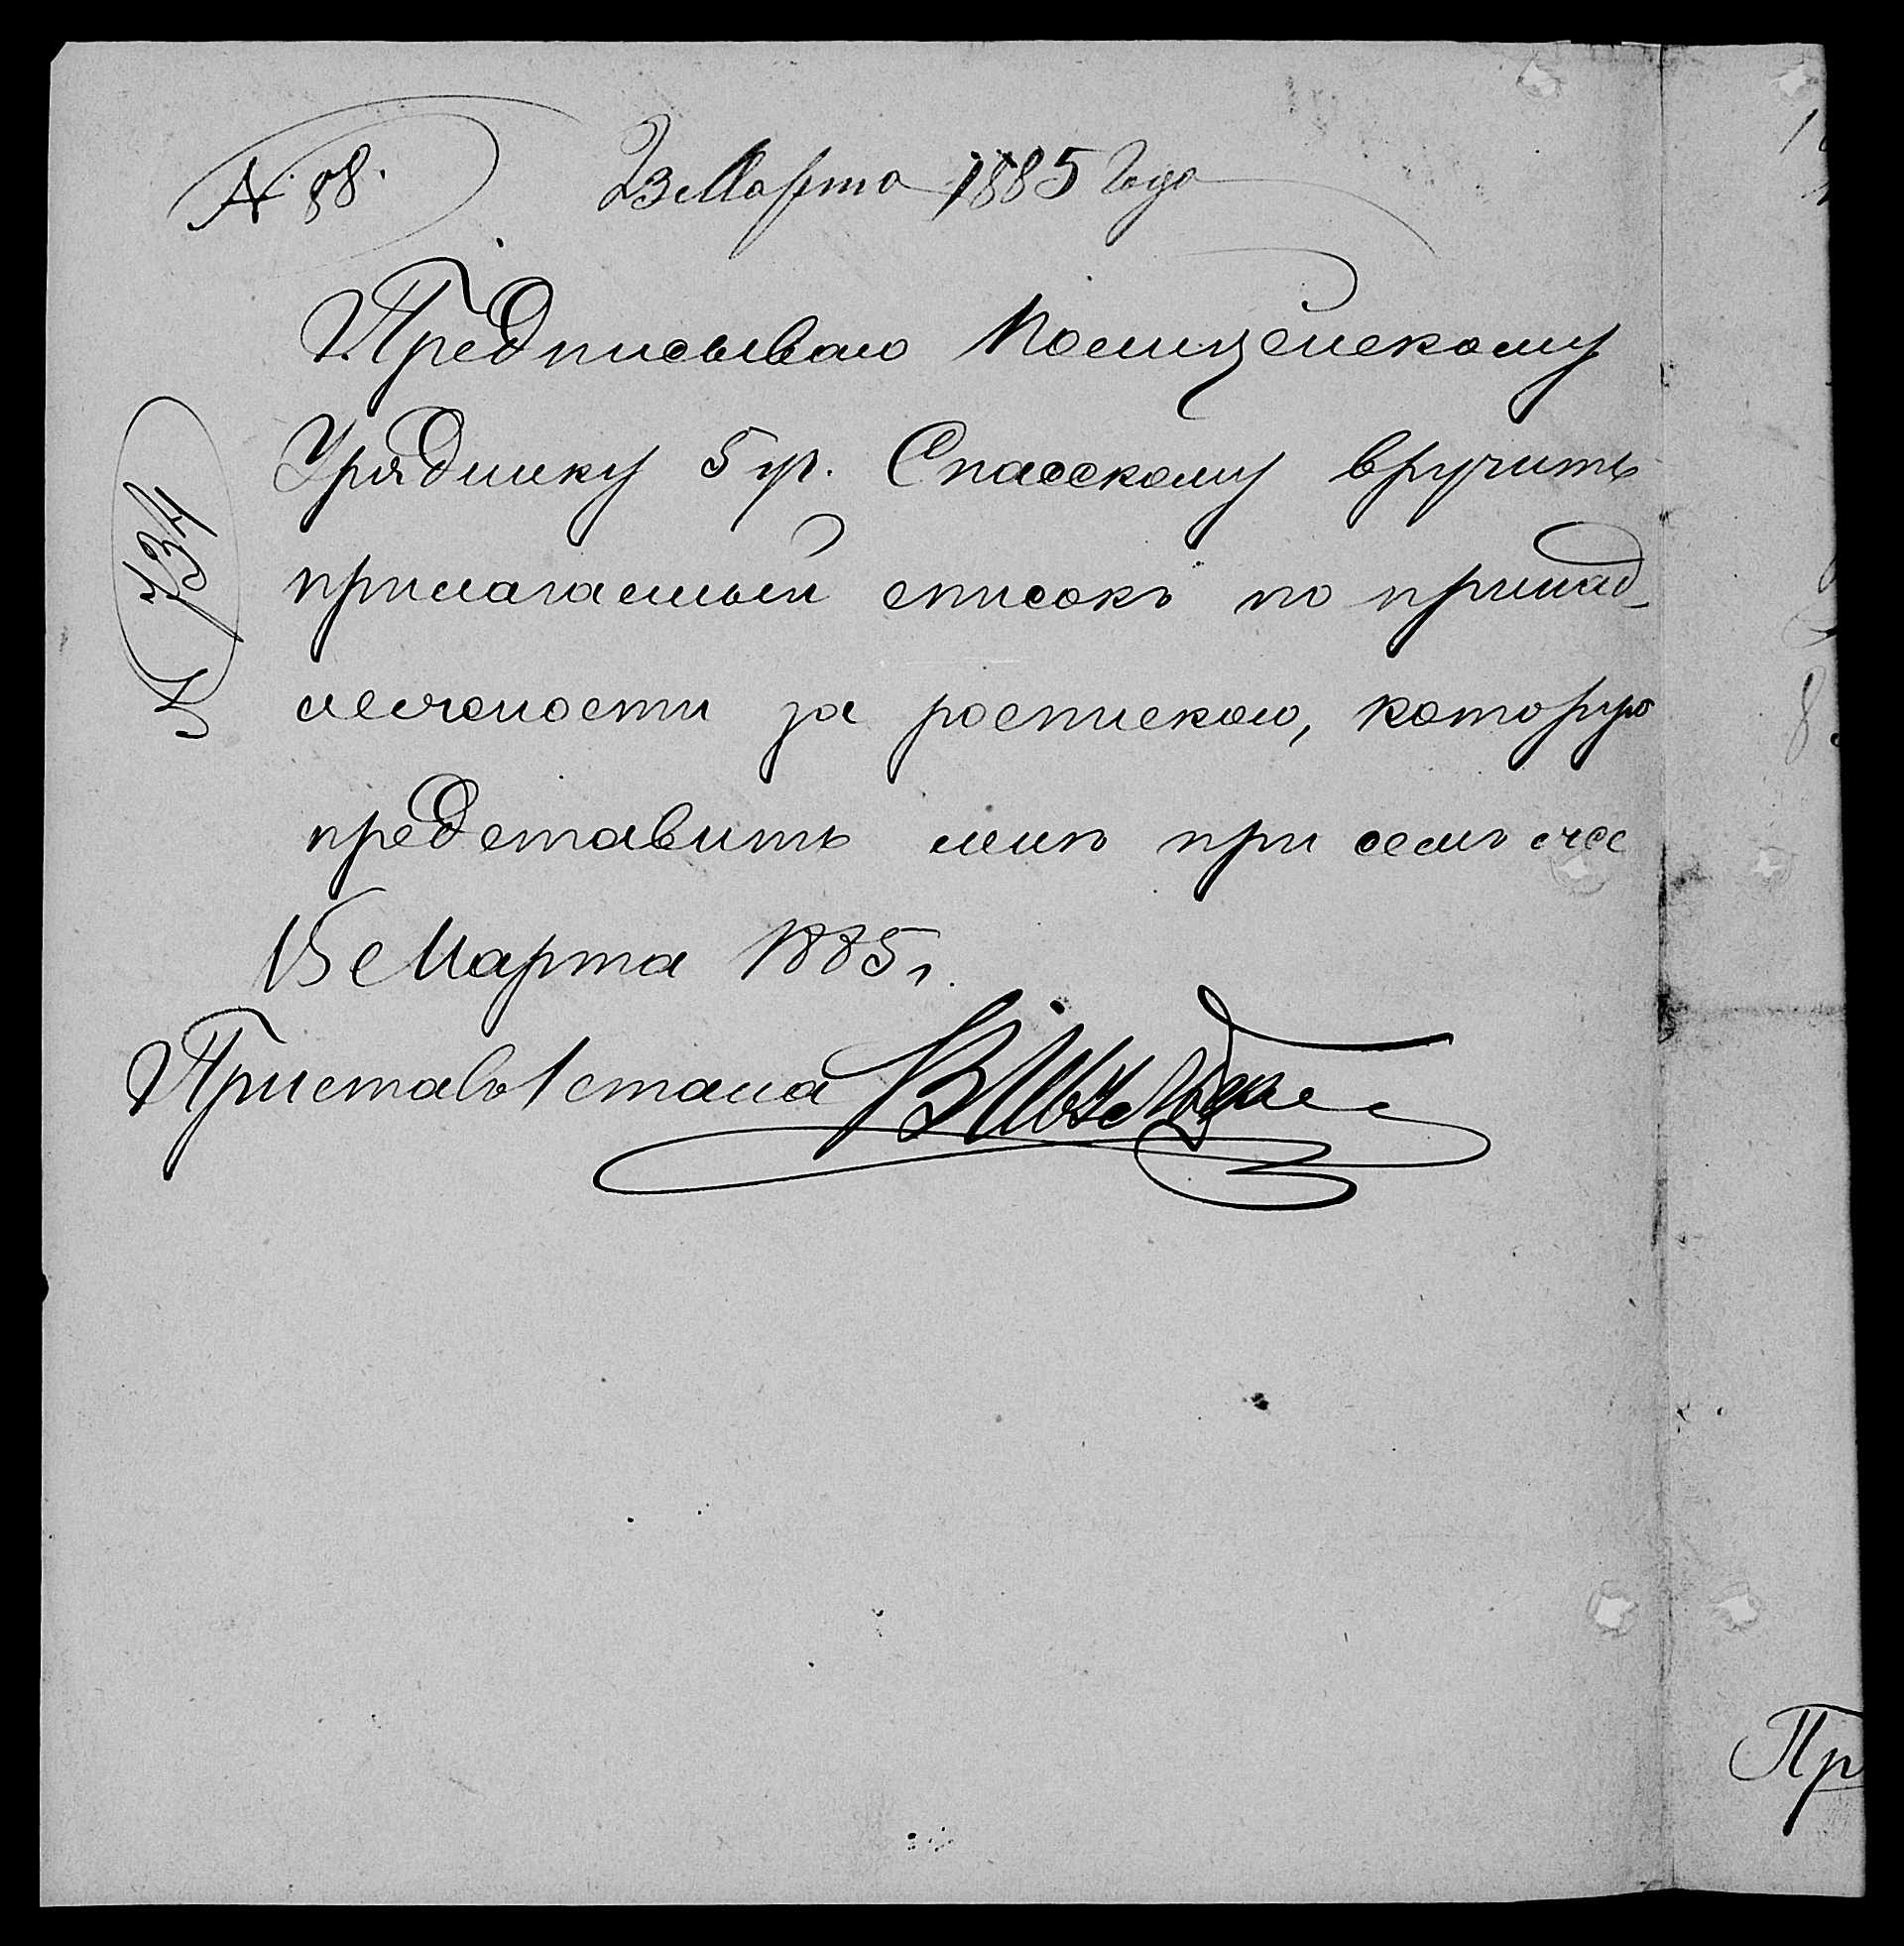 № 88.
23 Марта 1885 года
Предписываю Полицейскому
Уряднику 5 уч. Спасскому вручить
прилагаемый списокъ по принад-
лежности за роспискою, которую
представить мнѣ при семъ же
15 Марта 1885 г.
Приставъ 1 стана
№ 734
Пр